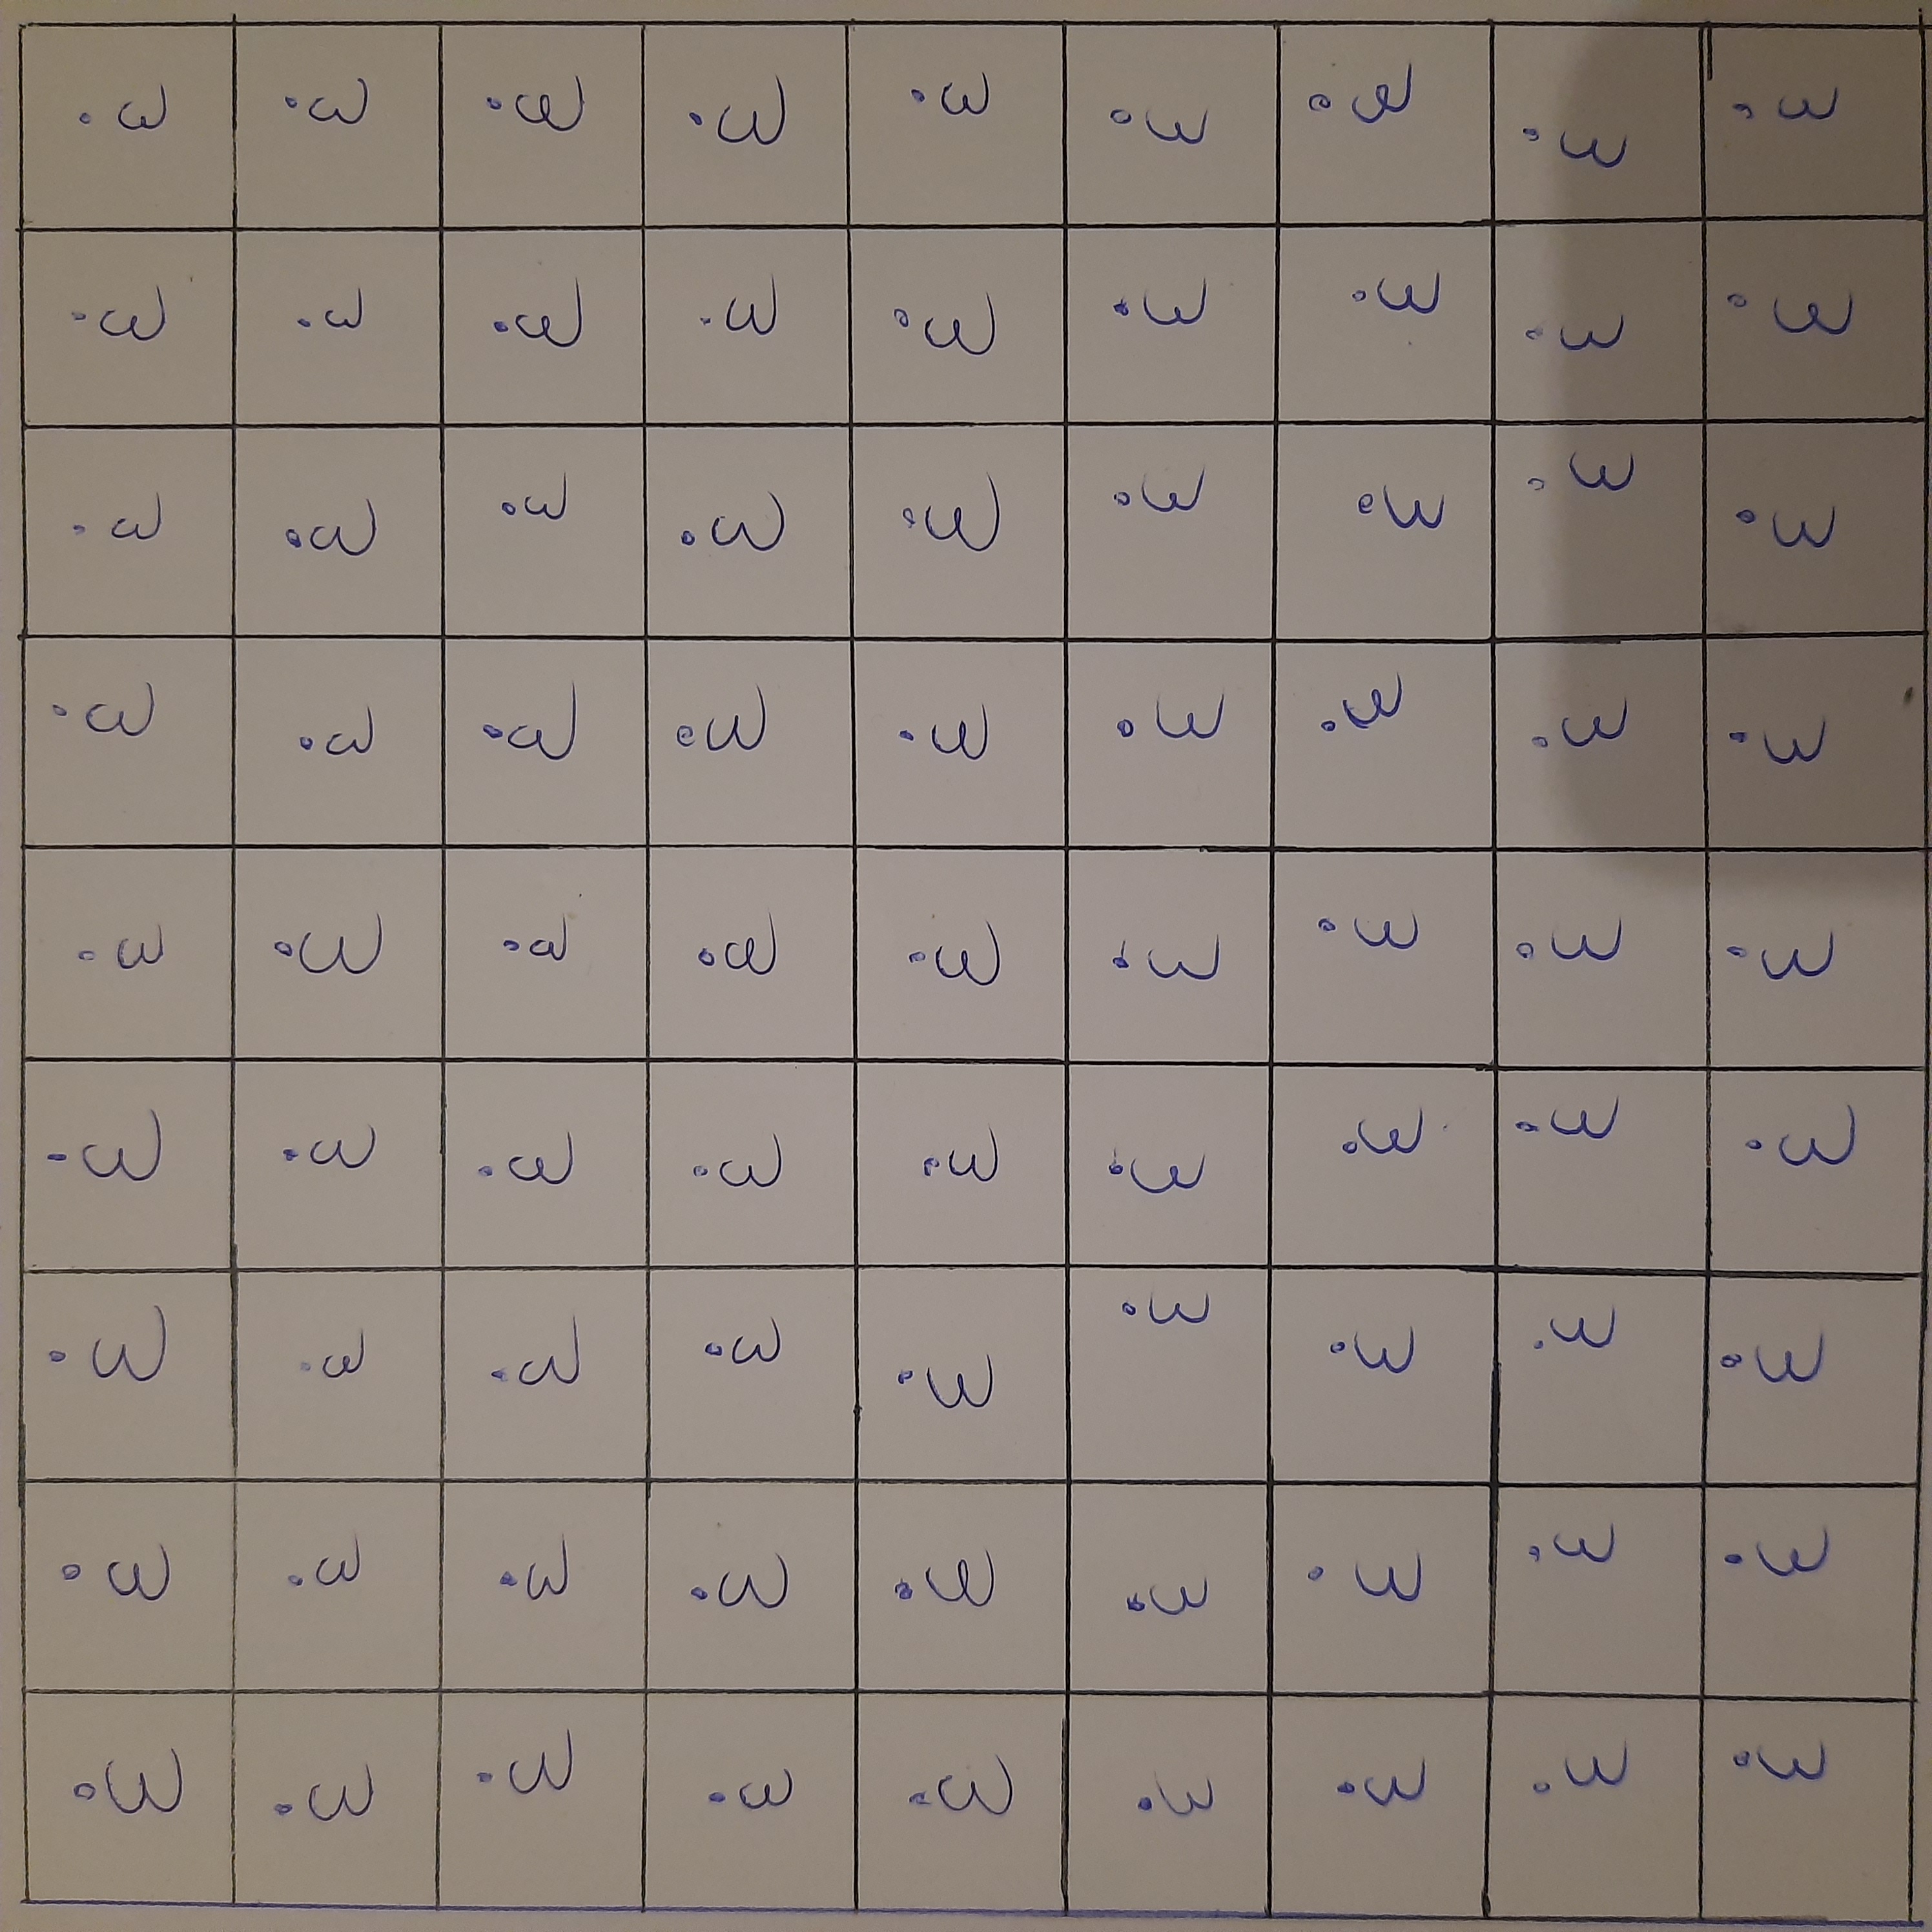 غ غ غ غ غ غ غ غ غ
غ غ غ غ غ غ غ غ غ
غ غ غ غ غ غ غ غ غ
غ غ غ غ غ غ غ غ غ
غ غ غ غ غ غ غ غ غ
غ غ غ غ غ غ غ غ غ
غ غ غ غ غ غ غ غ غ
غ غ غ غ غ غ غ غ غ
غ غ غ غ غ غ غ غ غ